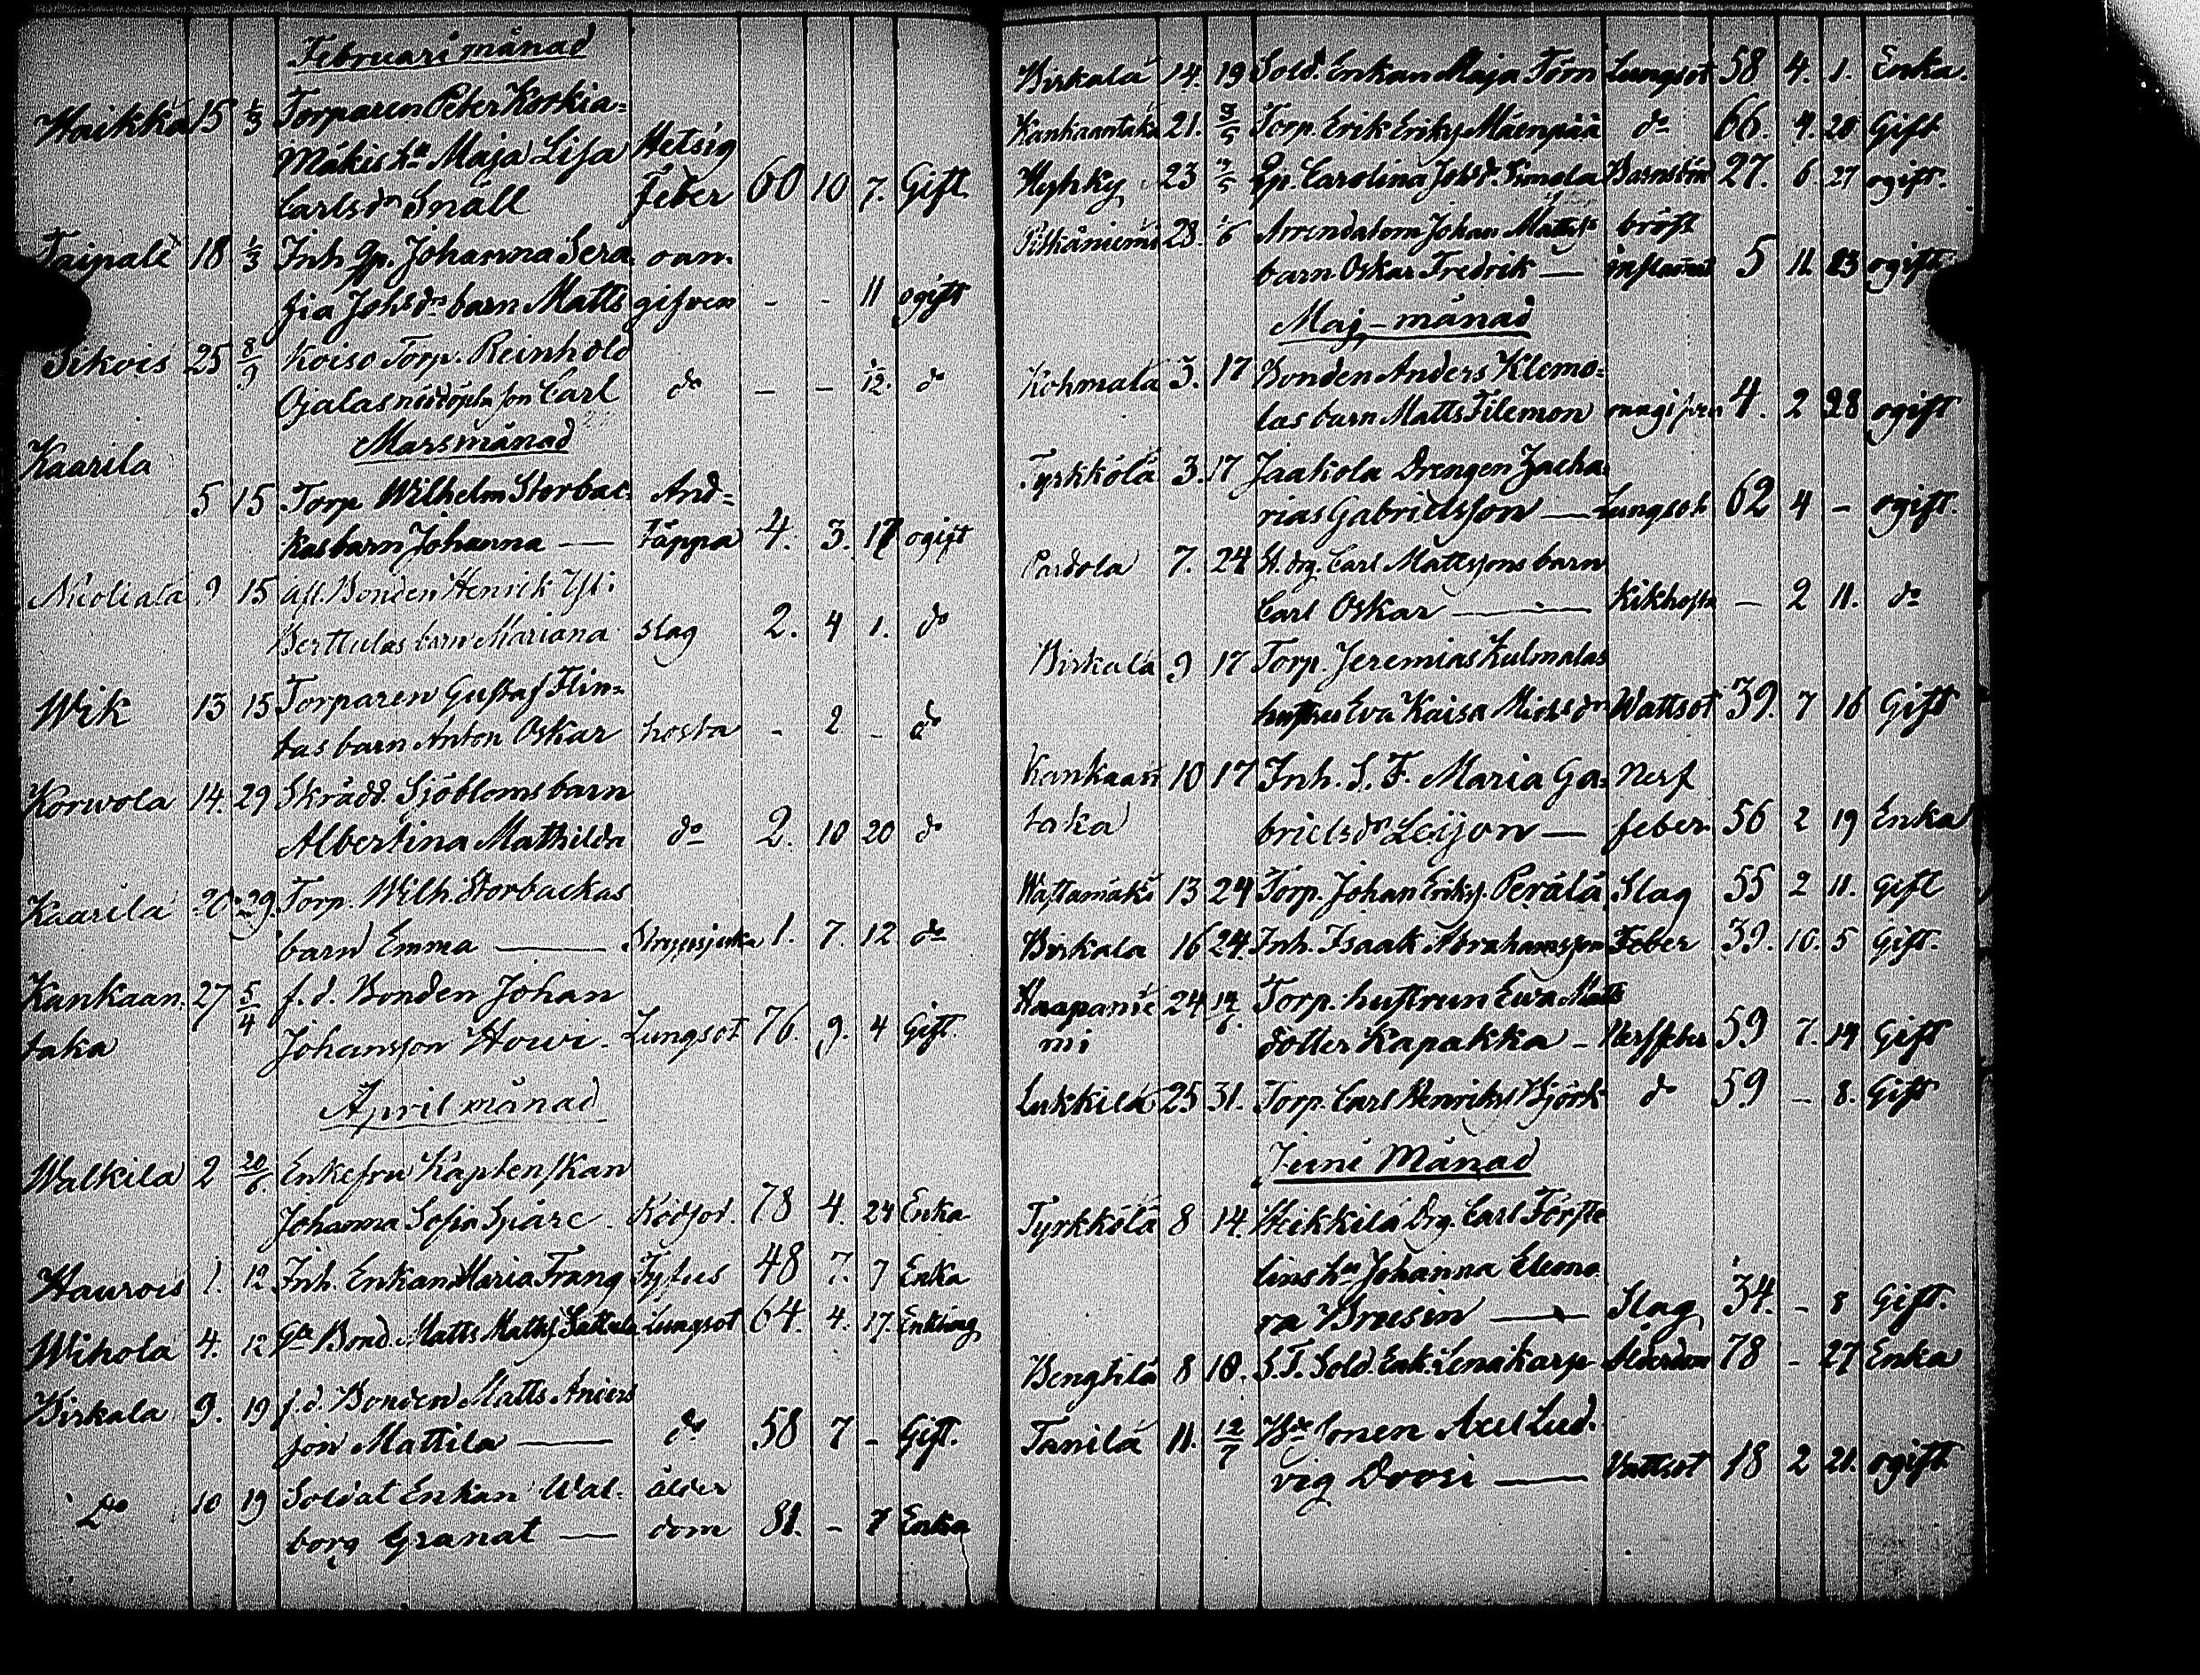 Februari månad
Haikka 15 1/3 Torparen Peter Koskia=
mäkis h:u Maja Lisa Hetsig
Carlsdr Snäll feber 60 10 7. Gift.
Taipale 18 1/3 Inh. qp. Johanna Sera- oan-
fia Johsdr barn Matts gifven - - 11 ogift
Sikois 25 8/9 Koiso Torp. Reinhold
Ojalas nöddöpta son Carl do - - 1/12. do
Marsmånad
Kaarila
5 15 Torp Wilhelm Storbac- And=
kas barn Johanna — täppa 4. 3. 17 ogift
Nicoliala 9 15 Bonden Henrik
Berttulas barn Mariana slag 2. 4 1. do
Wik 13 15 Torparen Gustaf Flin=
tas barn Anton Oskar hosta - 2 - do
Korwola 14. 29 Skrädd. Sjöbloms barn
Albertina Mathilda do 2. 10 20 do
Kaarila 20 29. Torp. Wilh. Storbackas
barn Emma — 1. 7. 12 do
Kankaan- 27 5/4 f. d. Bonden Johan
taka Johansson Howi. Lungsot 76. 9. 4 Gift.
April månad
Walkila 2 20/6. Enkefru Kaptenskan
Johanna Sofia Spåre. 78 4. 24 Enka
Haurois 1. 12 Inh. Enkan Maria Frang Tyfus 48 7. 7 Enka
Wihola 4. 12 Gla Bond. Matts Matts. Lungsot 64. 4. 17. Enkling
Birkala 9. 19 f. d. Bonden Matts Anders
son Mattila — do 58 7 - Gift.
Do 10 19 Soldat Enkan Wal- ålder
borg Granat — dom 81. - 7 Enka
Birkala 14. 19 Sold. Enkan Maja Törn Lungsot 58 4. 1. Enka.
Kankaantaka 21. 3/5 Torp. Erik Eriks. Mäenpää do 66. 4. 20 Gift
Hyhky 23 3/5 qp. Carolina Johsd. Barnsbörd 27. 6. 27 ogift.
Pitkäniemi 28. Arrendatorn Johan Matts. bröst
barn Oskar Fredrik — inflamat 5 11 23 ogift
Maj-månad
Kohmala 3. 17 Bonden Anders Klemo=
las barn Matts Filemon oangifven 4. 2 28 ogift
Tyrkkölä 3. 17 Jaakola Drengen Zacha-
rias Gabrielsson — Lungsot 62 4 - ogift.
Pardola 7. 24 St. drg. Carl Mattssons barn
Carl Oskar — Kikhosta — 2 11. do
Birkala 9 17 Torp. Jeremias Kulmalas
hustru Eva Kaisa Michsdr Wattsot 39. 7 16 Gift
Kankaan 10 17 Inh. S. F. Maria Ga= Nerf
taka brielsdr Leijon — feber. 56 2 19 Enka
Wattamäki 13 24 Torp. Johan Eriks. Perälä Slag 55 2 11. Gift
Birkala 16 24. Inh. Isaak Abrahamsson Feber 39. 10. 5 Gift.
Haapanie 24 14/6. Torp. hustrun Ewa Matts
mi dotter Kapakka - Nerffeber 59 7. 14 Gift
Lukkila 25 31. Torp. Carl Henriks. Björk do 59 - 8. Gift
Juni Månad
Tyrkkölä 8 14. Heikkilä Drg. Carl Förste
lins h:u Johanna Eleono
ra Brusin — Slag 34. - 8 Gift.
Bengtilä 8 10. S. F. Sold. Enk. Lena Karp Ålderdom 78 - 27 Enka
Tanilä 11. 12/7 Bde sonen Axel Lud-
vig Dorsi — Vattsot 18 2 21. ogift